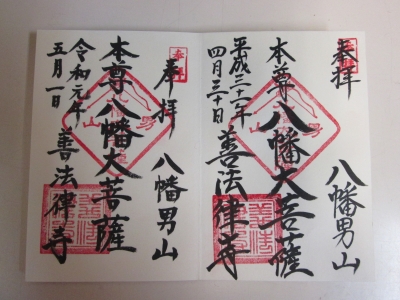 奉拝 八幡男山
本尊 八幡大菩薩
平成三十一年
四月三十日 善法律寺
奉拝 八幡男山
本尊 八幡大菩薩
令和元年
五月一日 善法律寺
男山